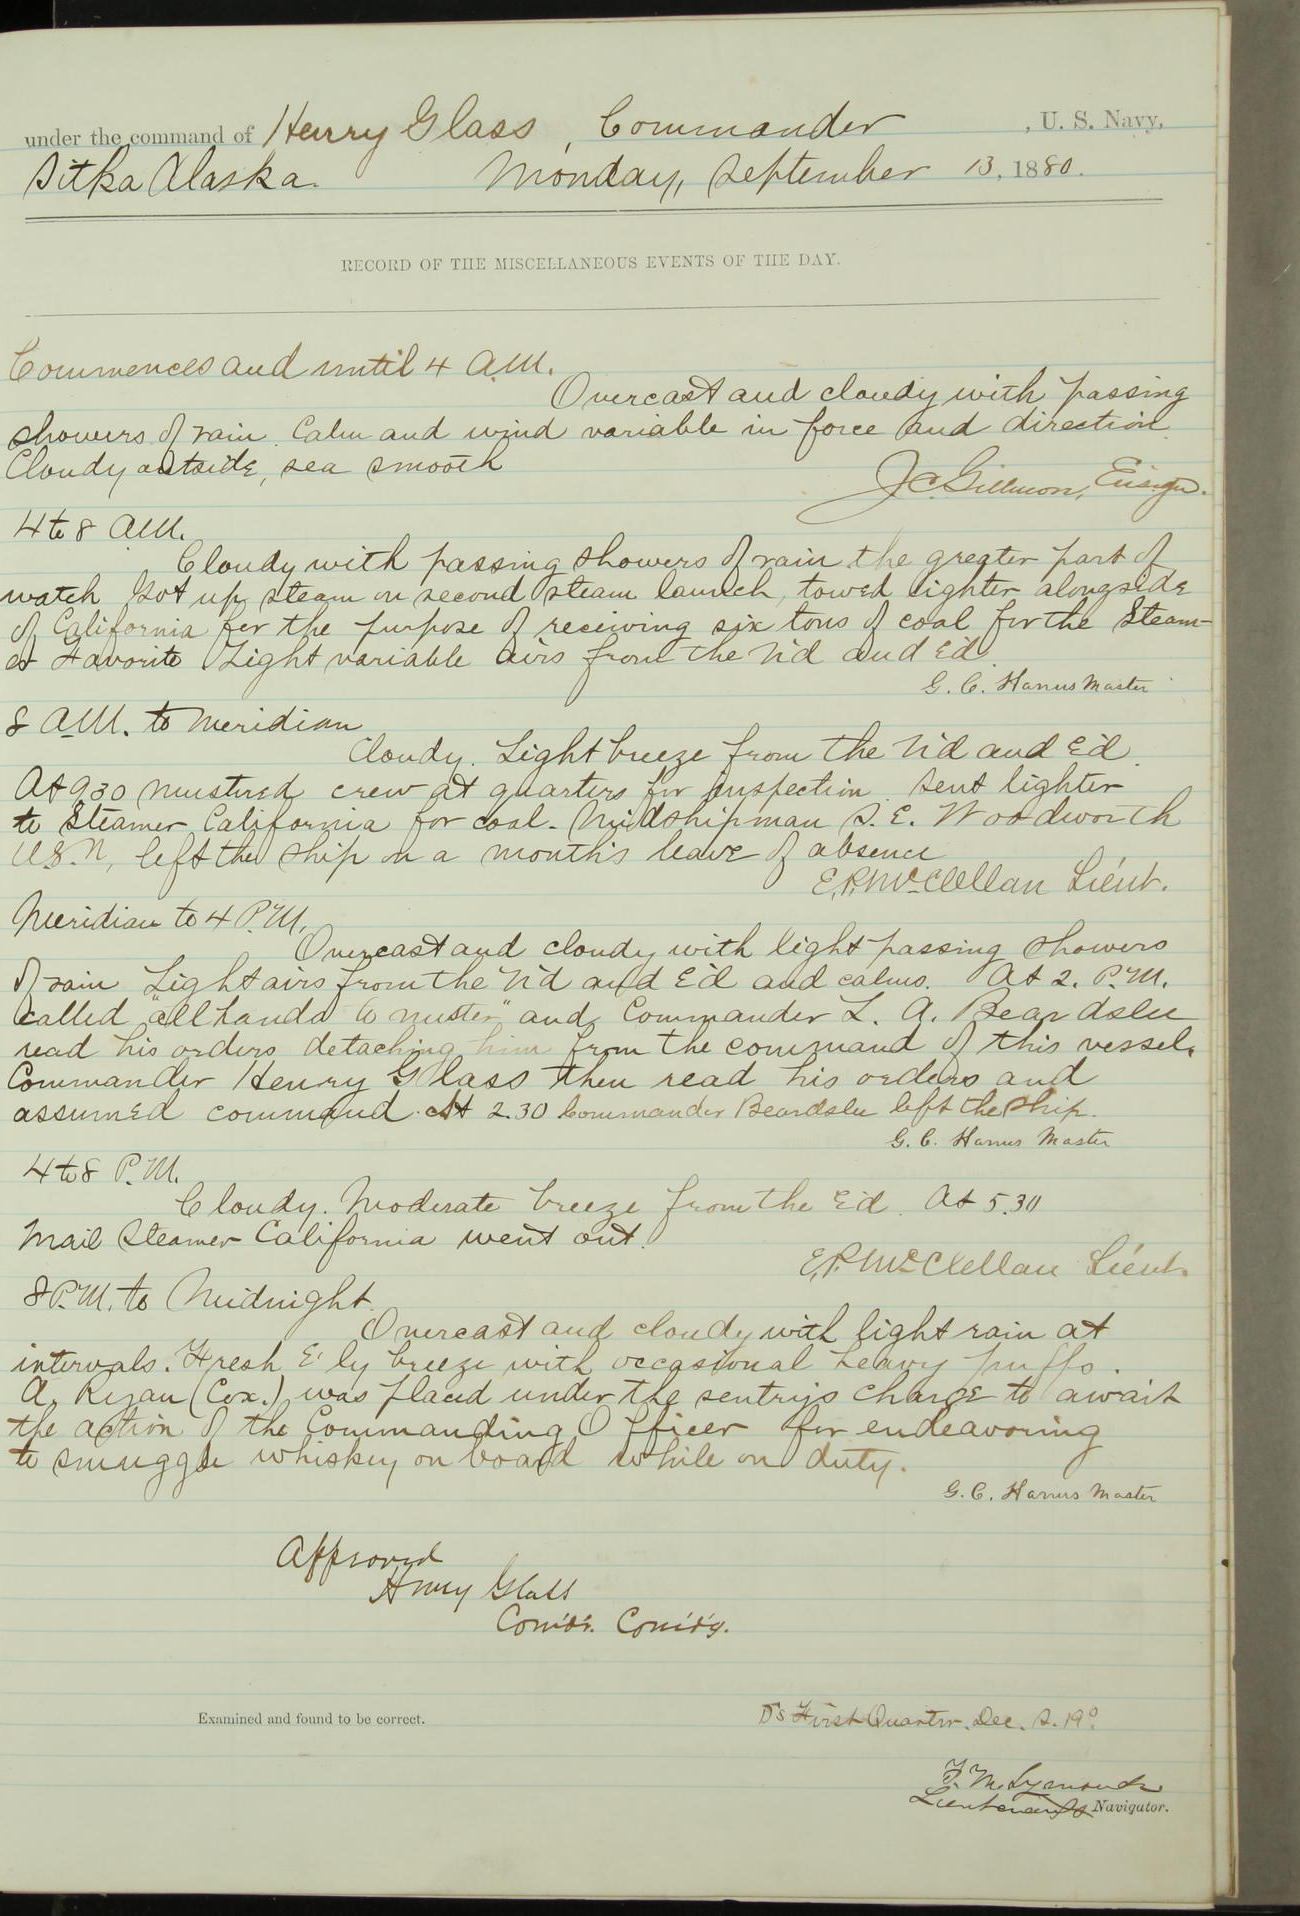 under the command of Henry Glass, Commander, U. S. Navy,
Sitka Alaska. Monday, September 13, 1880.
RECORD OF THE MISCELLANEOUS EVENTS OF THE DAY.
Commences and until 4 A.M.
Overcast and cloudy with passing
showers of rain. Calm and wind variable in force and direction
Cloudy outside, sea smooth
J.C. Gillmore, Ensign.
4 to 8 A.M.
Cloudy with passing showers of rain the greater part of
watch Got up steam on second steam launch, towed lighter alongside
of California for the purpose of receiving six tons of coal for the Steam-
er Favorite Light variable airs from the N'd and E'd.
G. C. Hanus Master
8 A.M. to Meridian
Cloudy. Light breeze from the N'd and E'd.
At 9 30 mustered crew at quarters for inspection sent lighter
to Steamer California for coal. Midshipman S. E. Woodworth
U.S.N, left the ship on a month's leave of absence
E.P. McClellan Lieut.
Meridian to 4 P.M.
Overcast and cloudy with light passing showers
of rain Light airs from the N'd and E'd and calms. At 2. P.M.
called "all hands to muster" and Commander L. A. Beardslee
read his orders detaching him from the command of this vessel.
Commander Henry Glass then read his orders and
assumed command. At 2.30 Commander Beardslee left the ship.
G. C. Hanus Master
4 to 8 P.M.
Cloudy. Moderate breeze from the E'd. At 5.30
Mail Steamer California went out.
E.P. McClellan Lieut.
8 P.M. to Midnight.
Overcast and cloudy with light rain at
intervals. Fresh E'ly breeze with occasional heavy puffs.
A. Ryan (Cox.) was placed under the sentry's charge to await
the action of the Commanding Officer for endeavoring
to smuggle whiskey on board while on duty.
G. C. Hanus Master
Approved
Henry Glass
Com'd'r. Com'd'g.
Examined and found to be correct.
D's First Quarter. Dec. S. 19°.
F. M. Symonds
Lieutenant & Navigator.